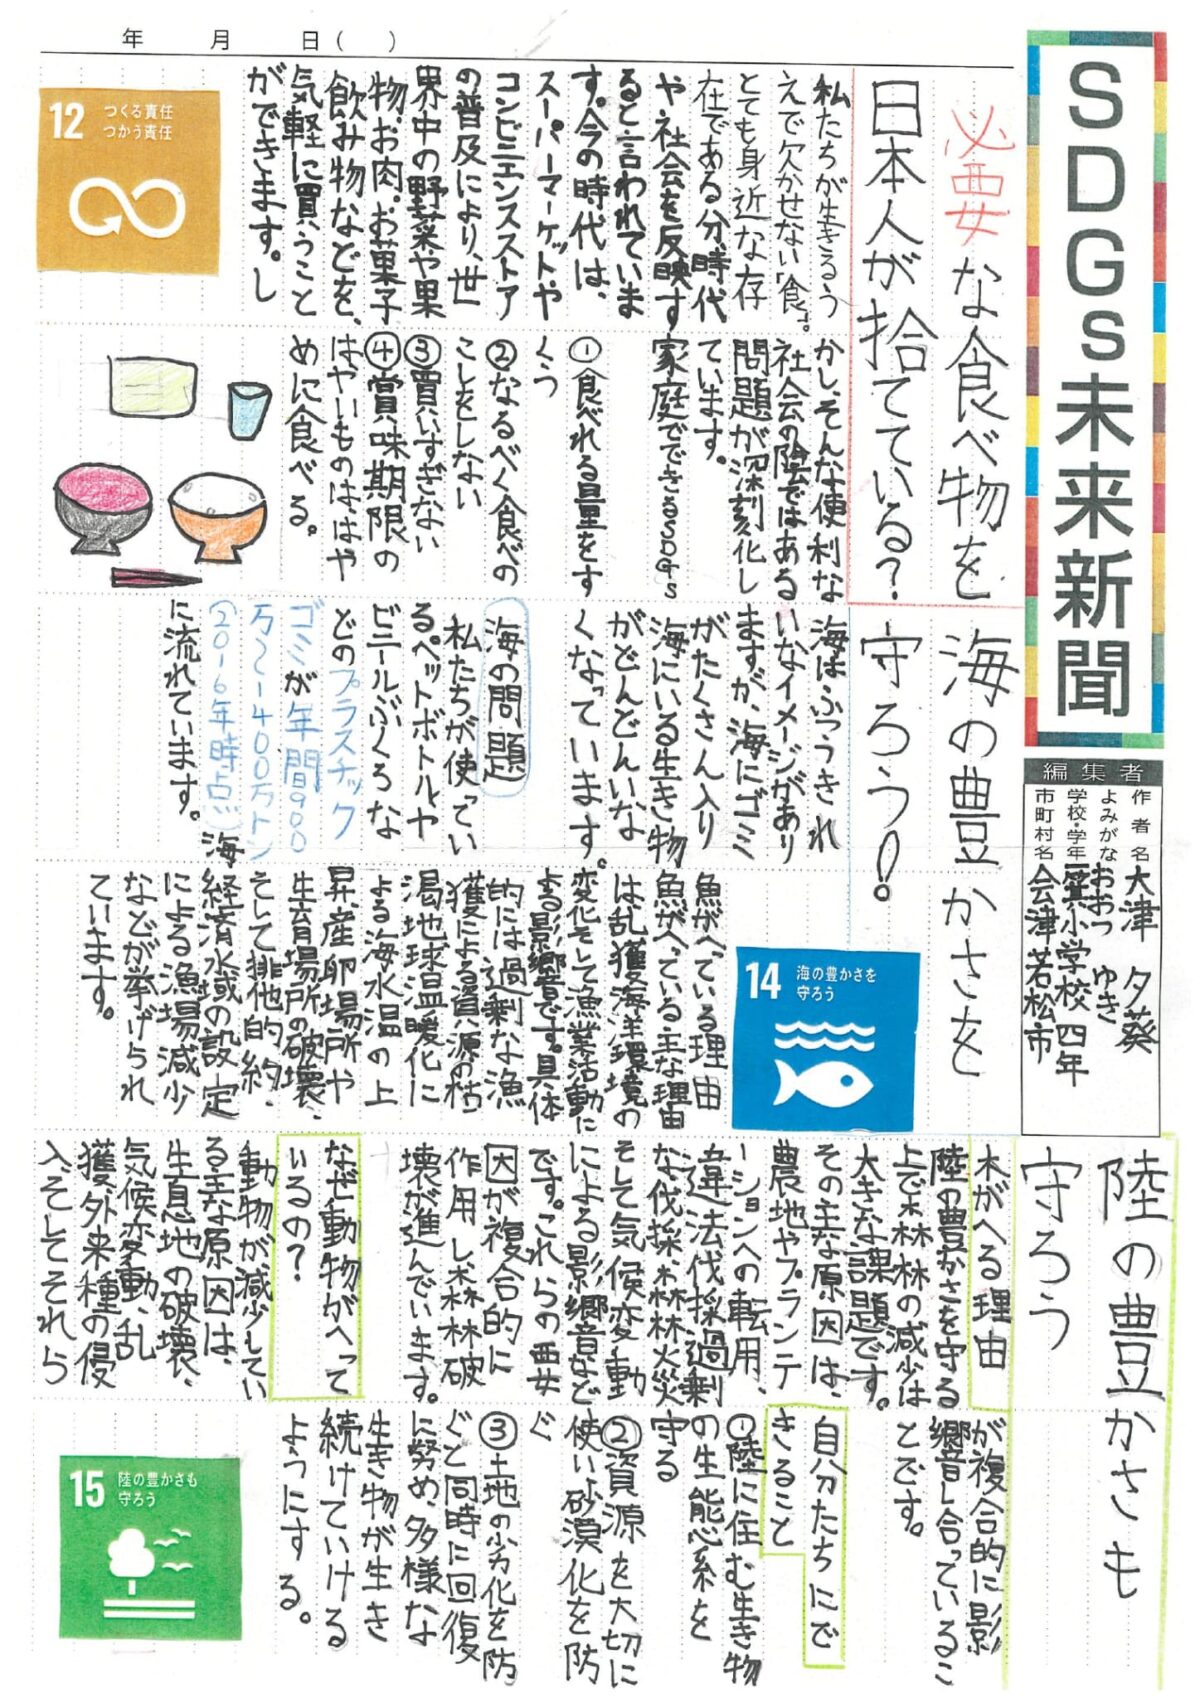 年　月　日（　）
SDGs未来新聞
編集者
作者名 大津 夕葵
よみがな おおつ ゆき
学校・学年 一箕小学校 四年
市町村名 会津若松市
必要な食べ物を
日本人が捨てている？
私たちが生きるう
えで欠かせない「食」。
とても身近な存
在である分、時代
や社会を反映す
ると言われていま
す。今の時代は、
スーパーマーケットや
コンビニエンスストア
の普及により、世
界中の野菜や果
物。お肉。お菓子
飲み物などを、
気軽に買うこと
ができます。し
かし、そんな便利な
社会の陰ではある
問題が深刻化し
ています。
家庭でできるSDGs
①食べれる量をす
くう
②なるべく食べの
こしをしない
③買いすぎない
④賞味期限の
はやいものははや
めに食べる。
12 つくる責任
つかう責任
海の豊かさを
守ろう！
海はふつうきれ
いなイメージがあり
ますが、海にゴミ
がたくさん入り
海にいる生き物
がどんどんいな
くなっています。
海の問題
私たちが使ってい
る。ペットボトルや
ビニールぶくろな
どのプラスチック
ゴミが年間900
万〜1400万トン
（2016年時点）海
に流れています。
14 海の豊かさを
守ろう
魚がへっている理由
魚がへっている主な理由
は乱獲、海洋環境の
変化そして漁業活動に
よる影響です。具体
的には過剰な漁
獲による資源の枯
渇、地球温暖化に
よる海水温の上
昇、産卵場所や
生育場所の破壊、
そして排他的
経済水域の設定
による漁場減少
などが挙げられ
ています。
陸の豊かさも
守ろう
木がへる理由
陸の豊かさを守る
上で森林の減少は
大きな課題です。
その主な原因は、
農地やプランテ
ーションへの転用、
違法伐採、過剰
な伐採、森林火災
そして気候変動
による影響など
です。これらの要
因が複合的に
作用し、森林破
壊が進んでいます。
なぜ動物がへって
いるの？
動物が減少してい
る主な原因は、
生息地の破壊、
気候変動、乱
獲、外来種の侵
入、そしてそれら
が複合的に影
響し合っているこ
とです。
自分たちにで
きること
①陸に住む生き物
の生態系を
守る
②資源を大切に
使い、砂漠化を防
ぐ
③土地の劣化を防
ぐと同時に回復
に努め、多様な
生き物が生き
続けていける
ようにする。
15 陸の豊かさも
守ろう